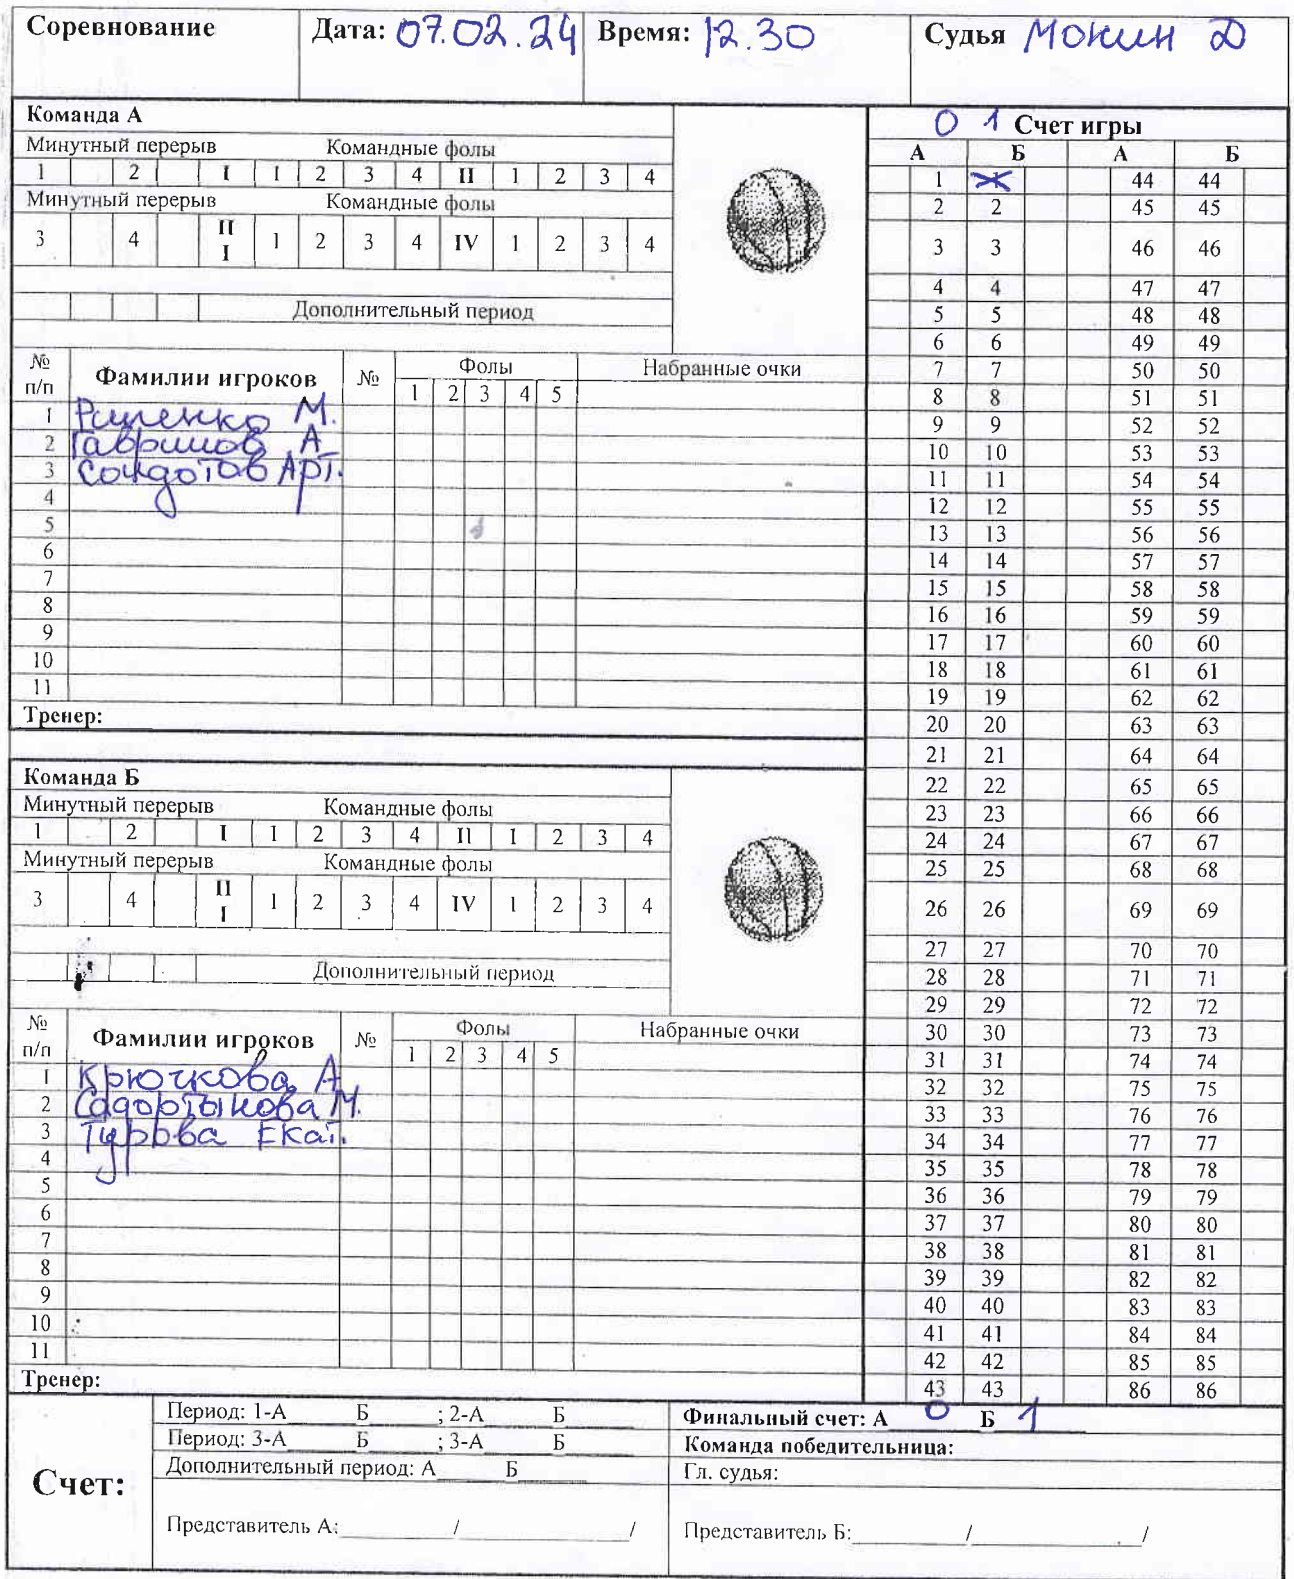 Соревнование Дата: 07.02.24 Время: 12.30 Судья Мокин Д
Команда А
Минутный перерыв Командные фолы
1 2 I 1 2 3 4 II 1 2 3 4
Минутный перерыв Командные фолы
3 4 II I 1 2 3 4 IV 1 2 3 4
Дополнительный период
№ п/п Фамилии игроков № Фолы Набранные очки
1 2 3 4 5
1 М.
2 А
3 Арт.
4
5
6
7
8
9
10
11
Тренер:
Команда Б
Минутный перерыв Командные фолы
1 2 I 1 2 3 4 II 1 2 3 4
Минутный перерыв Командные фолы
3 4 II I 1 2 3 4 IV 1 2 3 4
Дополнительный период
№ п/п Фамилии игроков № Фолы Набранные очки
1 2 3 4 5
1 Крючкова А
2 М.
3 Турова Екат.
4
5
6
7
8
9
10
11
Тренер:
0 1 Счет игры
А Б А Б
1 1 44 44
2 2 45 45
3 3 46 46
4 4 47 47
5 5 48 48
6 6 49 49
7 7 50 50
8 8 51 51
9 9 52 52
10 10 53 53
11 11 54 54
12 12 55 55
13 13 56 56
14 14 57 57
15 15 58 58
16 16 59 59
17 17 60 60
18 18 61 61
19 19 62 62
20 20 63 63
21 21 64 64
22 22 65 65
23 23 66 66
24 24 67 67
25 25 68 68
26 26 69 69
27 27 70 70
28 28 71 71
29 29 72 72
30 30 73 73
31 31 74 74
32 32 75 75
33 33 76 76
34 34 77 77
35 35 78 78
36 36 79 79
37 37 80 80
38 38 81 81
39 39 82 82
40 40 83 83
41 41 84 84
42 42 85 85
43 43 86 86
Счет:
Период: 1-А Б ; 2-А Б
Период: 3-А Б ; 3-А Б
Дополнительный период: А Б
Представитель А: / /
Финальный счет: А 0 Б 1
Команда победительница:
Гл. судья:
Представитель Б: / /